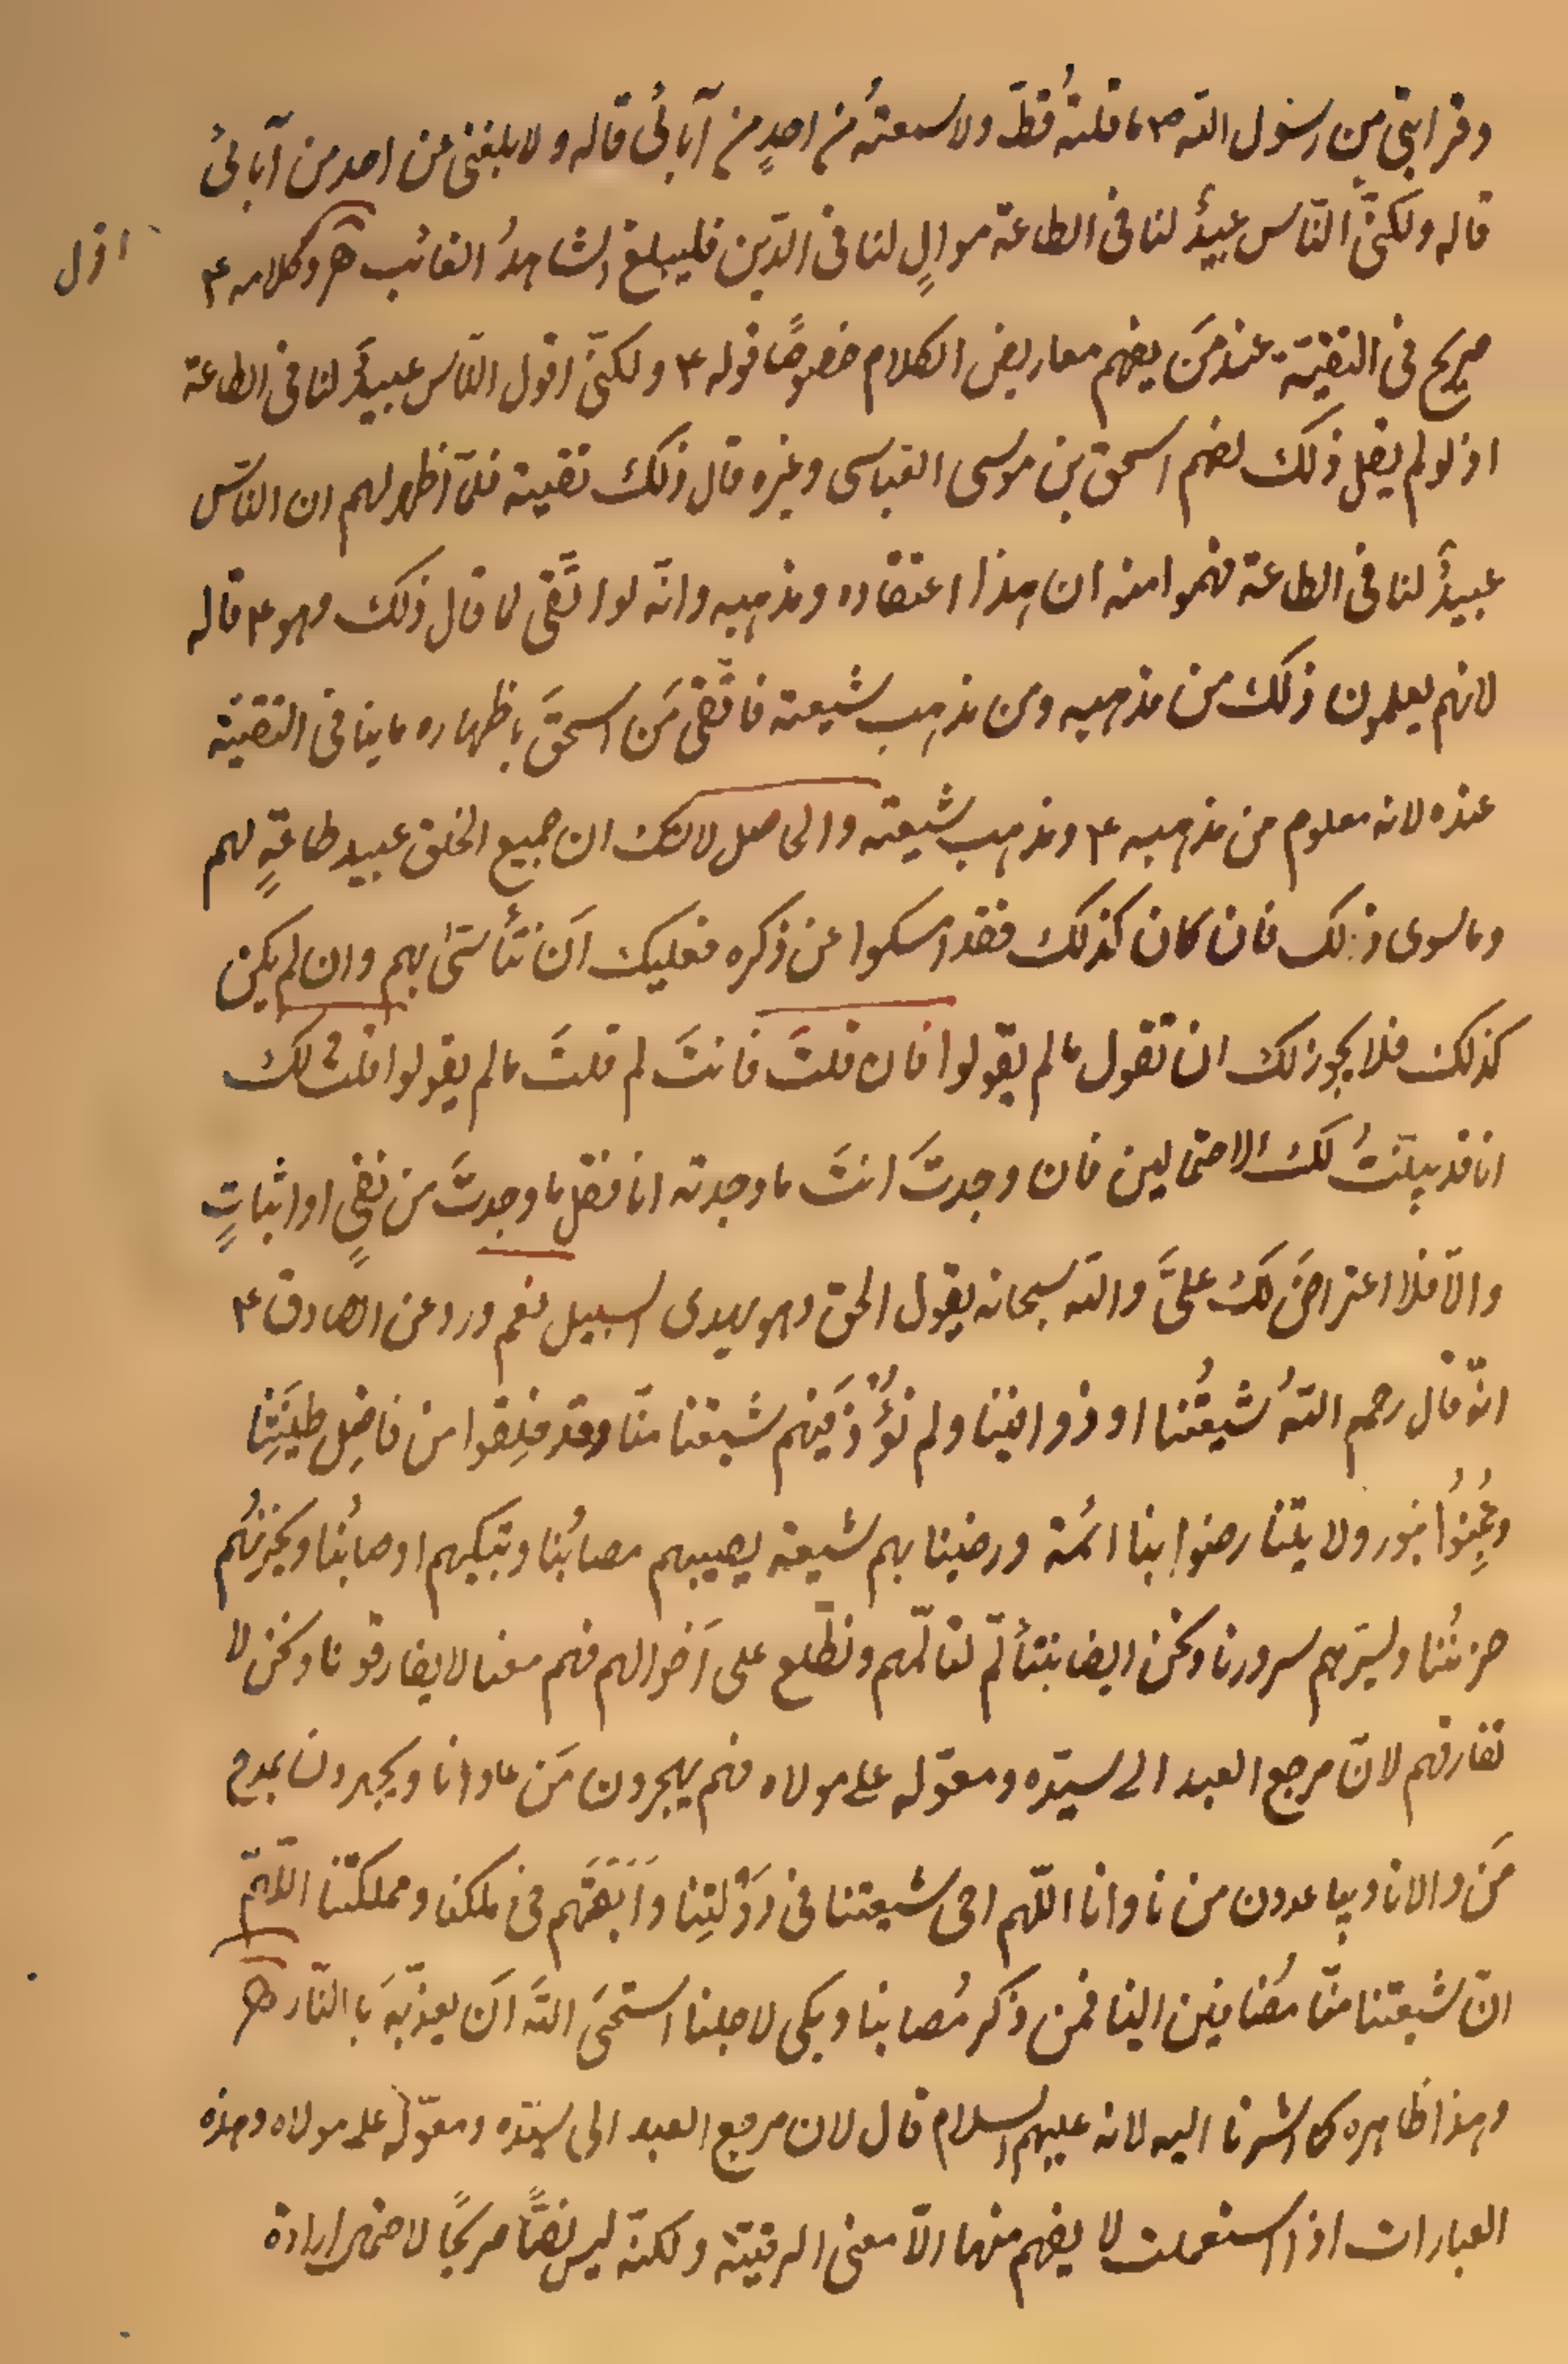 وقرابتي من رسول الله ص ما قلتُه قطّ ولا سمعتهُ من احدٍ من آبائي قاله و لا بلغني عن احد من آبائي
قاله ولكنّي النّاس عبيدٌ لنا في الطاعة موالٍ لنا في الدّين فليبلغ الشاهدُ الغائب هـ وكلامه ع
اقول
صريح في التقيّة عند مَن يفهم معاريض الكلام خصوصًا قوله ع ولكنّي اقول النّاس عبيدٌ لنا في الطاعة
اذ لو لم يقل ذلك لفهم اسحق بن موسى العباسي وغيره قال ذلك تقية فلمّا اظهر لهم ان النّاس
عبيدٌ لنا في الطاعة فهموا منه ان هذا اعتقاده ومذهبه وانّه لو اتّقى لما قال ذلك وهو ع قاله
لانهم يعلمون ذلك من مذهبه ومن مذهب شيعته فاتّقى مَن اسحقَ باظهاره ما ينافي التقيّة
عنده لانه معلوم من مذهبه ع ومذهب شيعته والحاصل لا شك ان جميع الخلق عبيد طاعةٍ لهم
وما سوى ذلك فان كان كذلك فقد امسكوا عن ذكره فعليك اَن تتأسّىٰ بهم وان لم يكن
كذلك فلا يجوز لك ان تقول ما لم يقولوا فان قلتَ فانتَ لم قلتَ ما لم يقولوا قلتُ لك
انا قد بيّنتُ لك الاحتمالين فان وجدتَ انتَ ما وجدته انا فقل ما وجدتَ من نفيٍ او اثباتٍ
والّا فلا اعتراضَ لك علىَّ والله سبحانه يقول الحق وهو يهدى السبيل نعم ورد عن الصادق ع
انّه قال رحم اللهُ شيعتُنا اوذوا فينا ولم نُؤْذَ فيهم شيعتنا منّا وقد خلِقوا من فاضِل طينَتِنا
وعُجِنُوا بنور ولايتنا رضوا بنا ائمة ورضينا بهم شيعة يصيبهم مصابُنا وتبكيهم اوصابُنا ويحزنُهم
حزنُنا ويسرّهم سرورنا ونحن ايضا نتألّم لتالّمهم ونطّلع على اَحوالهم فهم معنا لا يفارقونا ونحن لا
نفارقهم لانّ مرجع العبد الى سيّده ومعوّله على مولاه فهم يهجرون مَن عادانا ويجهرون بمدح
مَن والانا ويباعدون من ناوانا اللّهم احى شيعتنا في دَوْلتِنا وَاَبْقِهَم في ملكنا ومملكتنا اللّهمّ
انّ شيعتنا منّا مُضافين الينا فمن ذكر مُصابنا وبكى لاجلنا استحيَ اللهَ اَن يعذّبهَ بالنّار هـ
وهذا ظاهره كما اشرنا اليه لانه عليهم السلام قال لان مرجع العبد الى سيّده ومعوّله على مولاه وهذه
العبارات اذا استعملت لا يفهم منها الّا معنى الرقيّة ولكنّه ليس نصًّا صريحًا لاحتمال ارادة